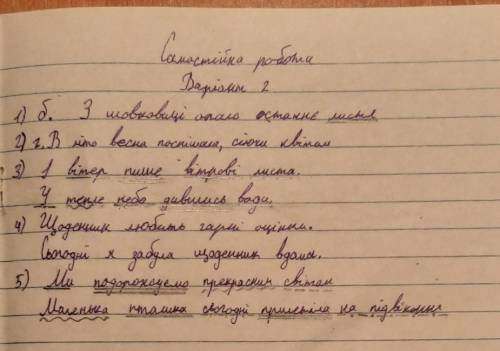 Самостійна робота
Варіант 2
1) б. З шовковиці опало останнє листя
2) г. В місто весна поспішала, сіючи квітам
3) І вітер пише вітрові листа.
У тепле небо дивились води.
4) Щоденник любить гарні оцінки.
Сьогодні я забула щоденник вдома.
5) Ми подорожуємо прекрасним світом
Маленька пташка сьогодні прилетіла на підвіконня